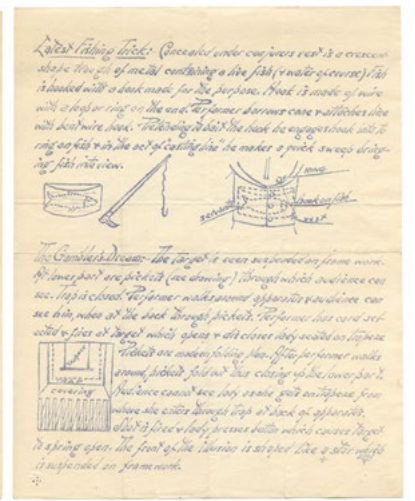 Latest Fishing Trick: Concealed under conjurers vest is a crescent
shape trough of metal containing a live fish (& water of course) Fish
is hooked with a hook made for the purpose. Hook is made of wire
with a loop or ring on the end. Performer borrows cane & attaches line
with bent wire hook. Pretending to bait the hook he engages hook into the
ring on fish & in the act of casting line he makes a quick sweep bring-
ing fish into view.
ring
hook on fish
servante
vest
The Gamblers Dream:- The target is seen suspended on frame work.
At lower part are pickets (see drawing) through which audience can
see. Trap is closed. Performer walks around apparatus & audience can
see him, when at the back through pickets. Performer has card sel-
ected & fires at target which opens & discloses lady seated on trapeze
Pickets are made on folding plan. After performer walks
around pickets fold out thus closing up the lower part.
Audience cannot see lady as she gets on trapeze from
where she enters through trap at back of apparatus.
Shot is fired & lady presses button which causes target
to spring open. The front of the illusion is shaped like a star which
is suspended on framework.
TRAP
covering